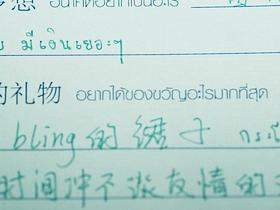 想 อนาคตอยากเป็นอะไร
มีเงินเยอะๆ
的礼物 อยากได้ของขวัญอะไรมากที่สุด
bling的裙子
时间冲不淡友情的